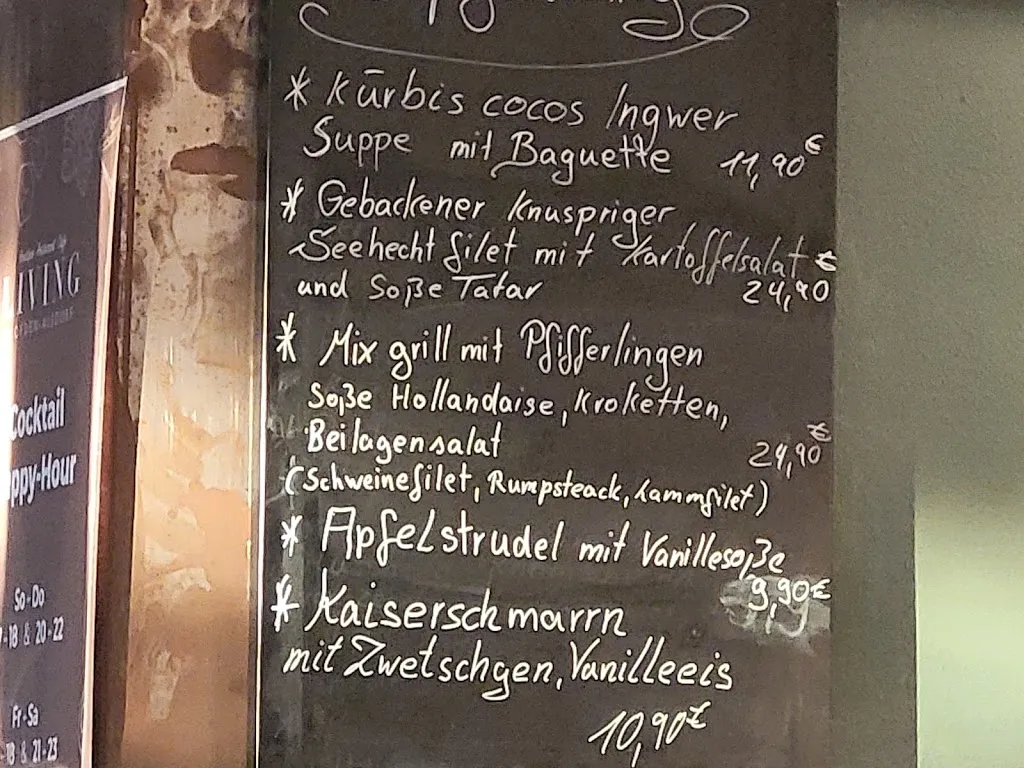 * Kürbis cocos Ingwer
Suppe mit Baguette 11,90€
* Gebackener Knuspriger
Seehechtfilet mit Kartoffelsalat €
und Soße Tatar 24,90
* Mix grill mit Pfifferlingen
Soße Hollandaise, Kroketten,
Beilagensalat 29,90€
(Schweinefilet, Rumpsteack, Lammfilet)
* Apfelstrudel mit Vanillesoße
9,90€
* Kaiserschmarrn
mit Zwetschgen, Vanilleeis
10,90€
IVING
Cocktail
ppy-Hour
So-Do
-18 & 20-22
Fr-Sa
18 & 21-23